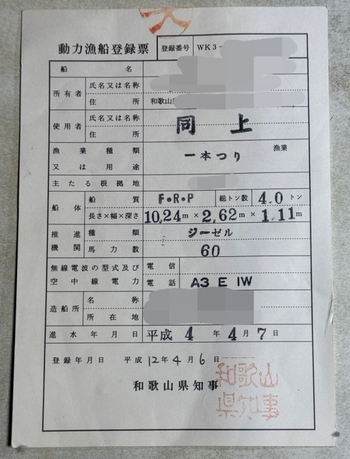 動力漁船登録票 登録番号 WK3-
船名
所有者 氏名又は名称
住所 和歌山県
使用者 氏名又は名称 同上
住所
漁業種類又は用途 一本つり 漁業
主たる根拠地
船体 船質 F・R・P 総トン数 4.0トン
長さ×幅×深さ 10.24m×2.62m×1.11m
推進機関 種類 ジーゼル
馬力数 60
無線電波の型式及び空中線電力 電信
電話 A3E 1W
造船所 名称
所在地
進水年月日 平成4年4月7日
登録年月日 平成12年4月6日
和歌山県知事